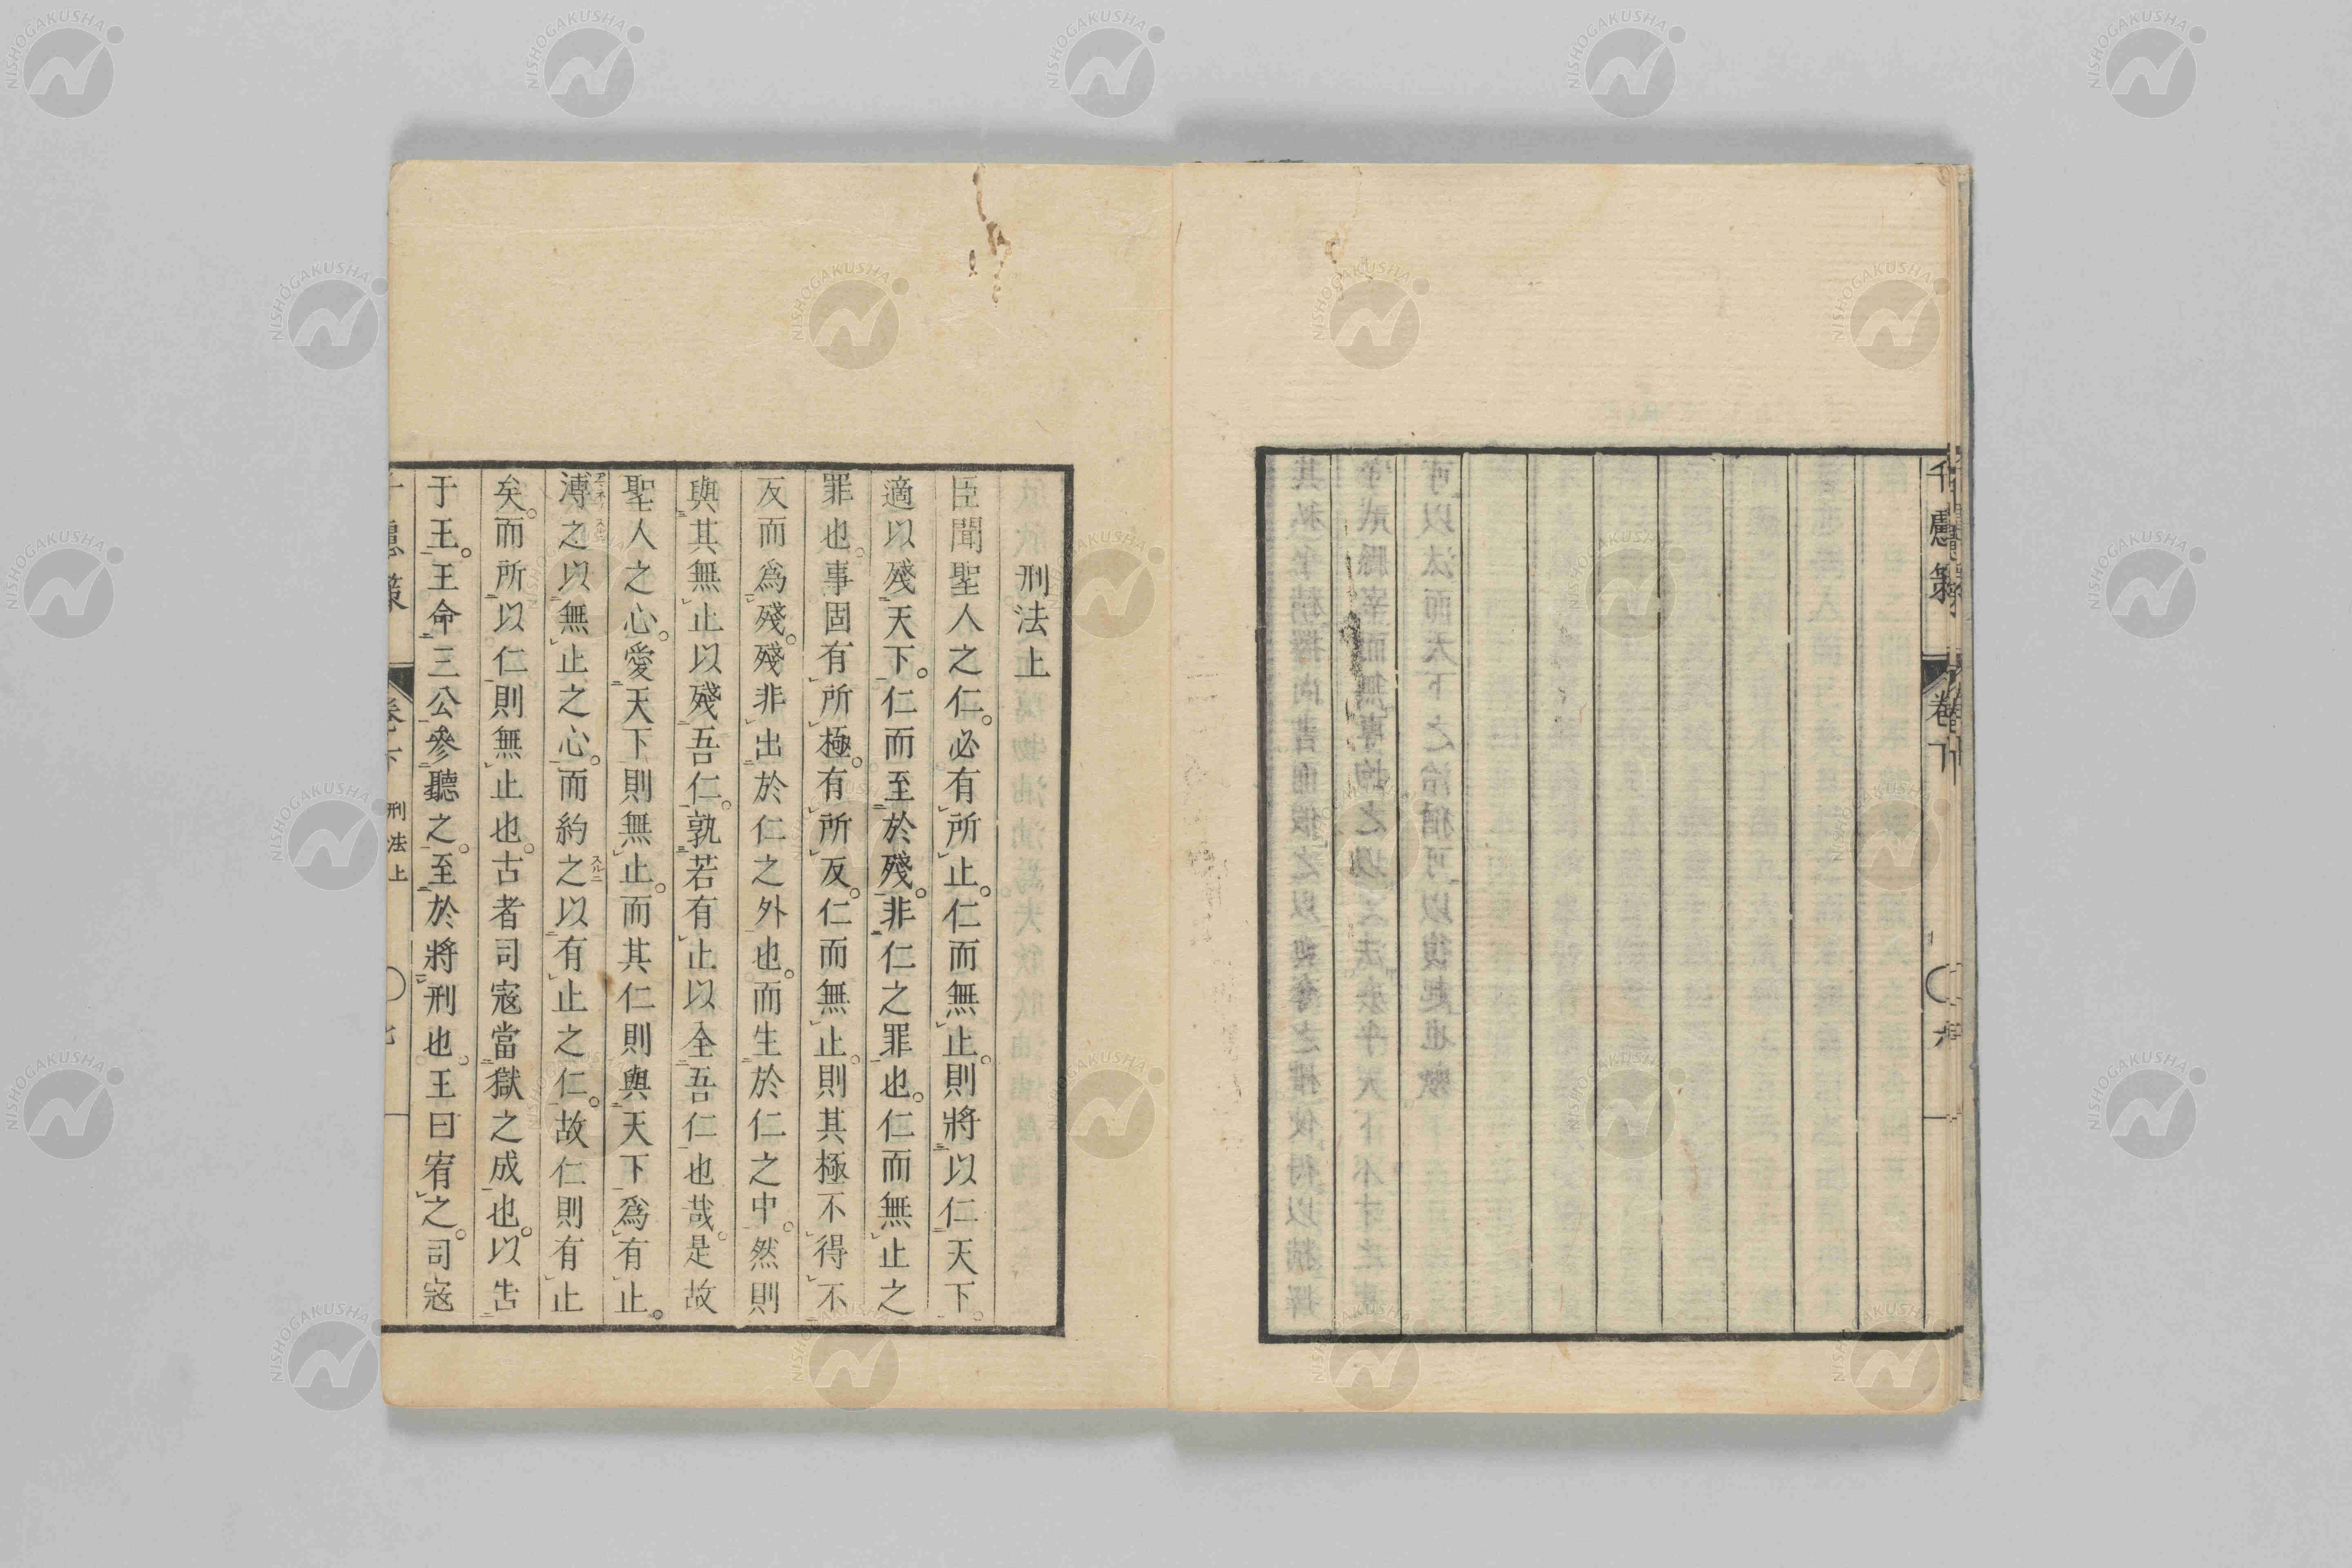 千慮策
卷下
六
刑法上
臣聞聖人之仁。必有所止。仁而無止。則將以仁天下。
適以殘天下。仁而至於殘。非仁之罪也。仁而無止之
罪也。事固有所極。有所反。仁而無止。則其極不得不
反而爲殘。殘非出於仁之外也。而生於仁之中。然則
與其無止以殘吾仁。孰若有止以全吾仁也哉。是故
聖人之心。愛天下則無止。而其仁則與天下爲有止。
溥之以無止之心。而約之以有止之仁。故仁則有止
矣。而所以仁則無止也。古者司寇當獄之成也。以告
于王。王命三公參聽之。至於將刑也。王曰宥之。司寇
千慮策
卷下
刑法上
七
NISHOGAKUSHA